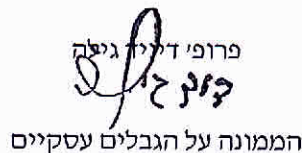 פרופי דיויד גילה
הממונה על הגבלים עסקיים